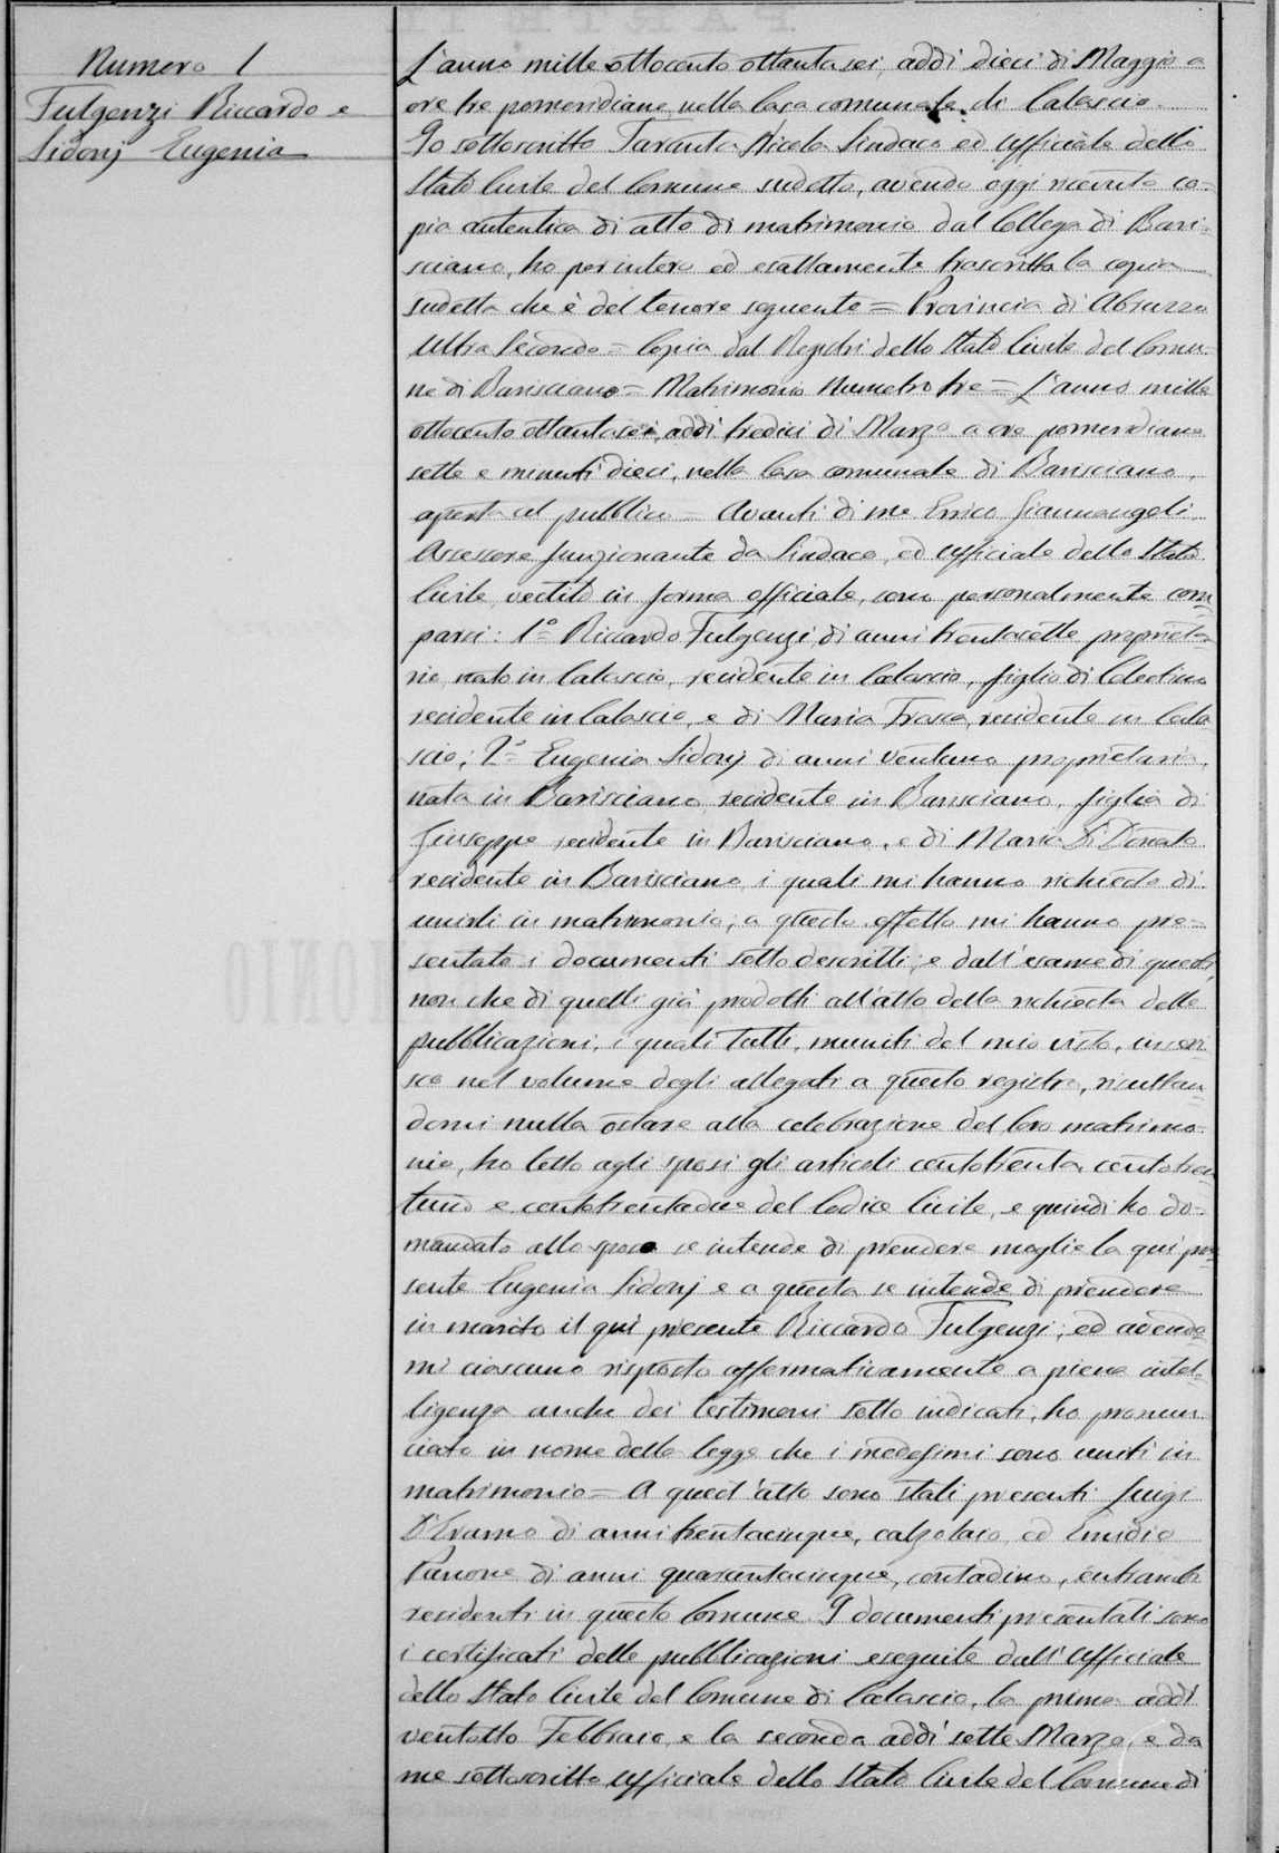 Numero 1
Fulgenzi Riccardo e
Sidonj Eugenia
L'anno mille ottocento ottantasei, addì dieci di Maggio a
ore tre pomeridiane, nella Casa comunale di Calascio.
Io sottoscritto Taranta Nicola Sindaco ed uffiziale dello
Stato Civile del Comune sudetto, avendo oggi ricevuto co-
pia autentica di atto di matrimonio dal Collega di Bari-
sciano, ho per intero ed esattamente trascritta la copia
sudetta che è del tenore seguente = Provincia di Abruzzo
Ultra Secondo = Copia dal Registri dello Stato Civile del Comu-
ne di Barisciano = Matrimonio Numero tre = L'anno mille
ottocento ottantasei, addì tredici di Marzo a ore pomeridiane
sette e minuti dieci, nella Casa comunale di Barisciano,
aperta al pubblico = Avanti di me Errico Giannangeli
Assessore funzionante da Sindaco, ed ufficiale dello Stato
Civile, vestito in forma officiale, sono personalmente com-
parsi: 1° Riccardo Fulgenzi, di anni trentasette, proprieta-
rio, nato in Calascio, residente in Calascio, figlio di Celestino
residente in Calascio, e di Maria Frasca, residente in Cala
scio; 2° Eugenia Sidonj di anni ventuno proprietaria,
nata in Barisciano, residente in Barisciano, figlia di
Giuseppe residente in Barisciano, e di Maria Di Donato
residente in Barisciano i quali mi hanno richiesto di
unirli in matrimonio; a questo effetto mi hanno pre-
sentato i documenti sotto descritti; e dall'esame di questi,
non che di quelli già prodotti all'atto della richiesta delle
pubblicazioni, i quali tutti, muniti del mio visto, inseri-
sco nel volume degli allegati a questo registro, risultan-
domi nulla ostare alla celebrazione del loro matrimo-
nio, ho letto agli sposi gli articoli centotrenta, centotren-
tuno e centotrentadue del Codice Civile, e quindi ho do-
mandato allo sposo se intende di prendere moglie la qui pre-
sente Eugenia Sidonj e a questa se intende di prendere
in marito il qui presente Riccardo Fulgenzi; ed avendo-
mi ciascuno risposto affermativamente a piena intel-
ligenza anche dei testimoni sotto indicati, ho pronun-
ciato in nome della legge che i medesimi sono uniti in
matrimonio = A quest'atto sono stati presenti Luigi
D'Eramo di anni trentacinque, calzolaio, ed Emidio
Panone di anni quarantacinque, contadino, entrambi
residenti in questo Comune. I documenti presentati sono
i certificati delle pubblicazioni eseguite dall'Ufficiale
dello Stato Civile del Comune di Calascio, la prima addì
ventotto Febbraio, e la seconda addì sette Marzo, e da
me sottoscritto ufficiale dello Stato Civile del Comune di